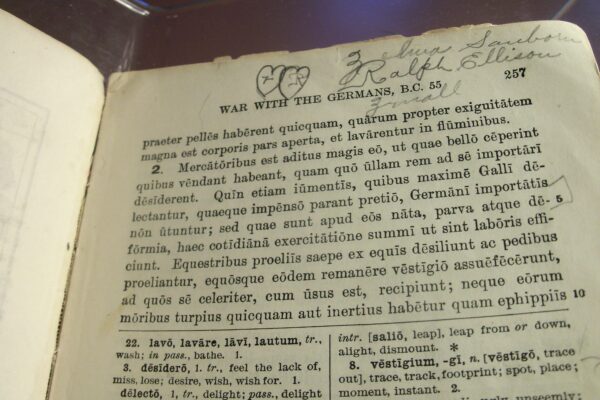 Zelma Sanborn
Ralph Ellison
WAR WITH THE GERMANS, B.C. 55 257
praeter pellēs habērent quicquam, quārum propter exiguitātem
magna est corporis pars aperta, et lavārentur in flūminibus.
2. Mercātōribus est aditus magis eō, ut quae bellō cēperint
quibus vēndant habeant, quam quō ūllam rem ad sē importārī
dēsīderent. Quīn etiam iūmentīs, quibus maximē Gallī dē-
lectantur, quaeque impēnsō parant pretiō, Germānī importātīs
nōn ūtuntur; sed quae sunt apud eōs nāta, parva atque dē- 5
fōrmia, haec cotīdiānā exercitātiōne summī ut sint labōris effi-
ciunt. Equestribus proeliīs saepe ex equīs dēsiliunt ac pedibus
proeliantur, equōsque eōdem remanēre vēstīgiō assuēfēcērunt,
ad quōs sē celeriter, cum ūsus est, recipiunt; neque eōrum
mōribus turpius quicquam aut inertius habētur quam ephippiīs 10
22. lavō, lavāre, lāvī, lautum, tr.,
wash; in pass., bathe. 1.
3. dēsīderō, 1. tr., feel the lack of,
miss, lose; desire, wish, wish for. 1.
dēlectō, 1, tr., delight; pass., delight
intr. [saliō, leap], leap from or down,
alight, dismount. *
8. vēstīgium, -gī, n. [vēstīgō, trace
out], trace, track, footprint; spot, place;
moment, instant. 2.
unseemly;